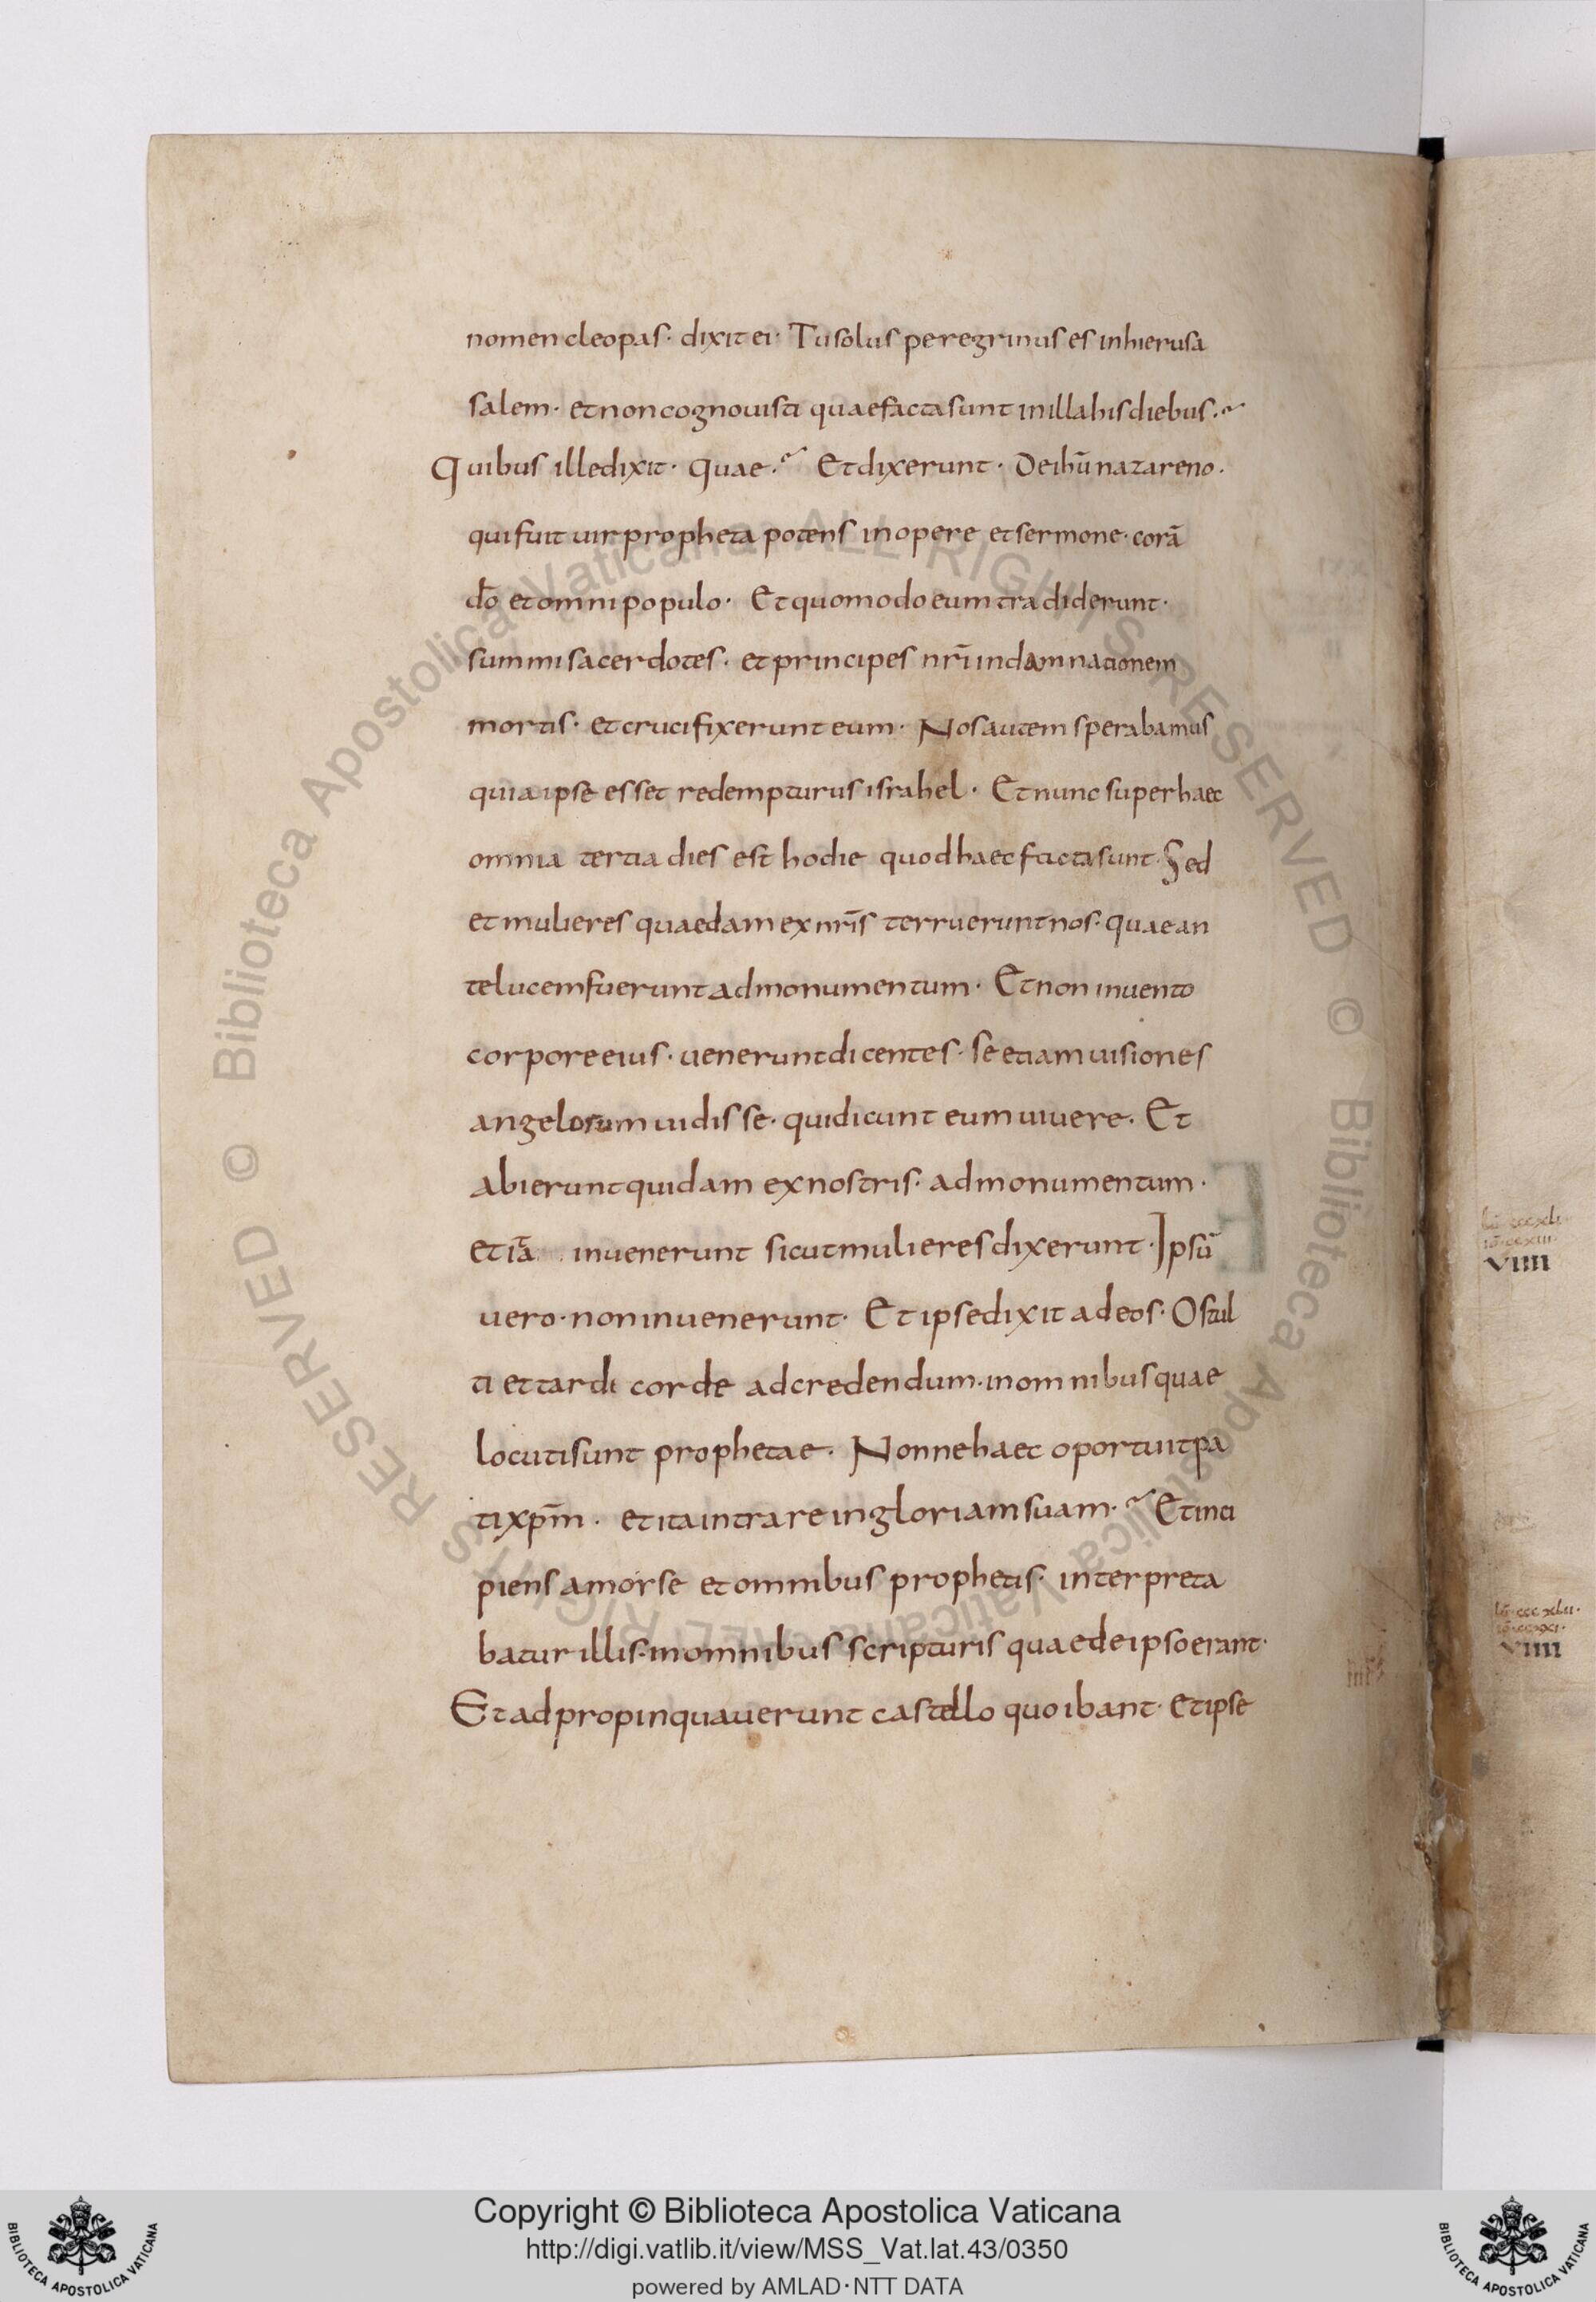 nomen cleopas· dixit ei· Tu solus peregrinus es in hierusa
salem· et non cognouisti quae facta sunt in illa his diebus·
Quibus ille dixit· quae· Et dixerunt· De ihū nazareno·
qui fuit uir propheta potens in opere et sermone· corā
dō et omni populo· Et quomodo eum tradiderunt·
summi sacerdotes· et principes nrī in damnationem
mortis· et crucifixerunt eum· Nos autem sperabamus
quia ipse esset redempturus israhel· Et nunc super haec
omnia tertia dies est hodie quod haec facta sunt· Sed
et mulieres quaedam ex nrīs terruerunt nos· quae an
te lucem fuerunt ad monumentum· Et non inuento
corpore eius· uenerunt dicentes· se etiam uisiones
angelorum uidisse· qui dicunt eum uiuere· Et
abierunt quidam ex nostris· ad monumentum·
et itā inuenerunt sicut mulieres dixerunt· Ipsū
uero· non inuenerunt· Et ipse dixit ad eos· O stul
ti et tardi corde ad credendum· in omnibus quae
locuti sunt prophetae· Nonne haec oportuit pa
ti xpm̄· et ita intrare in gloriam suam· Et inci
piens a morse et omnibus prophetis· interpreta
batur illis· in omnibus scripturis quae de ipso erant·
Et adpropinquauerunt castello quo ibant· Et ipse
VIIII
VIIII
© Biblioteca Apostolica Vaticana ALL RIGHTS RESERVED
Copyright © Biblioteca Apostolica Vaticana
http://digi.vatlib.it/view/MSS_Vat.lat.43/0350
powered by AMLAD·NTT DATA
BIBLIOTECA APOSTOLICA VATICANA
BIBLIOTECA APOSTOLICA VATICANA